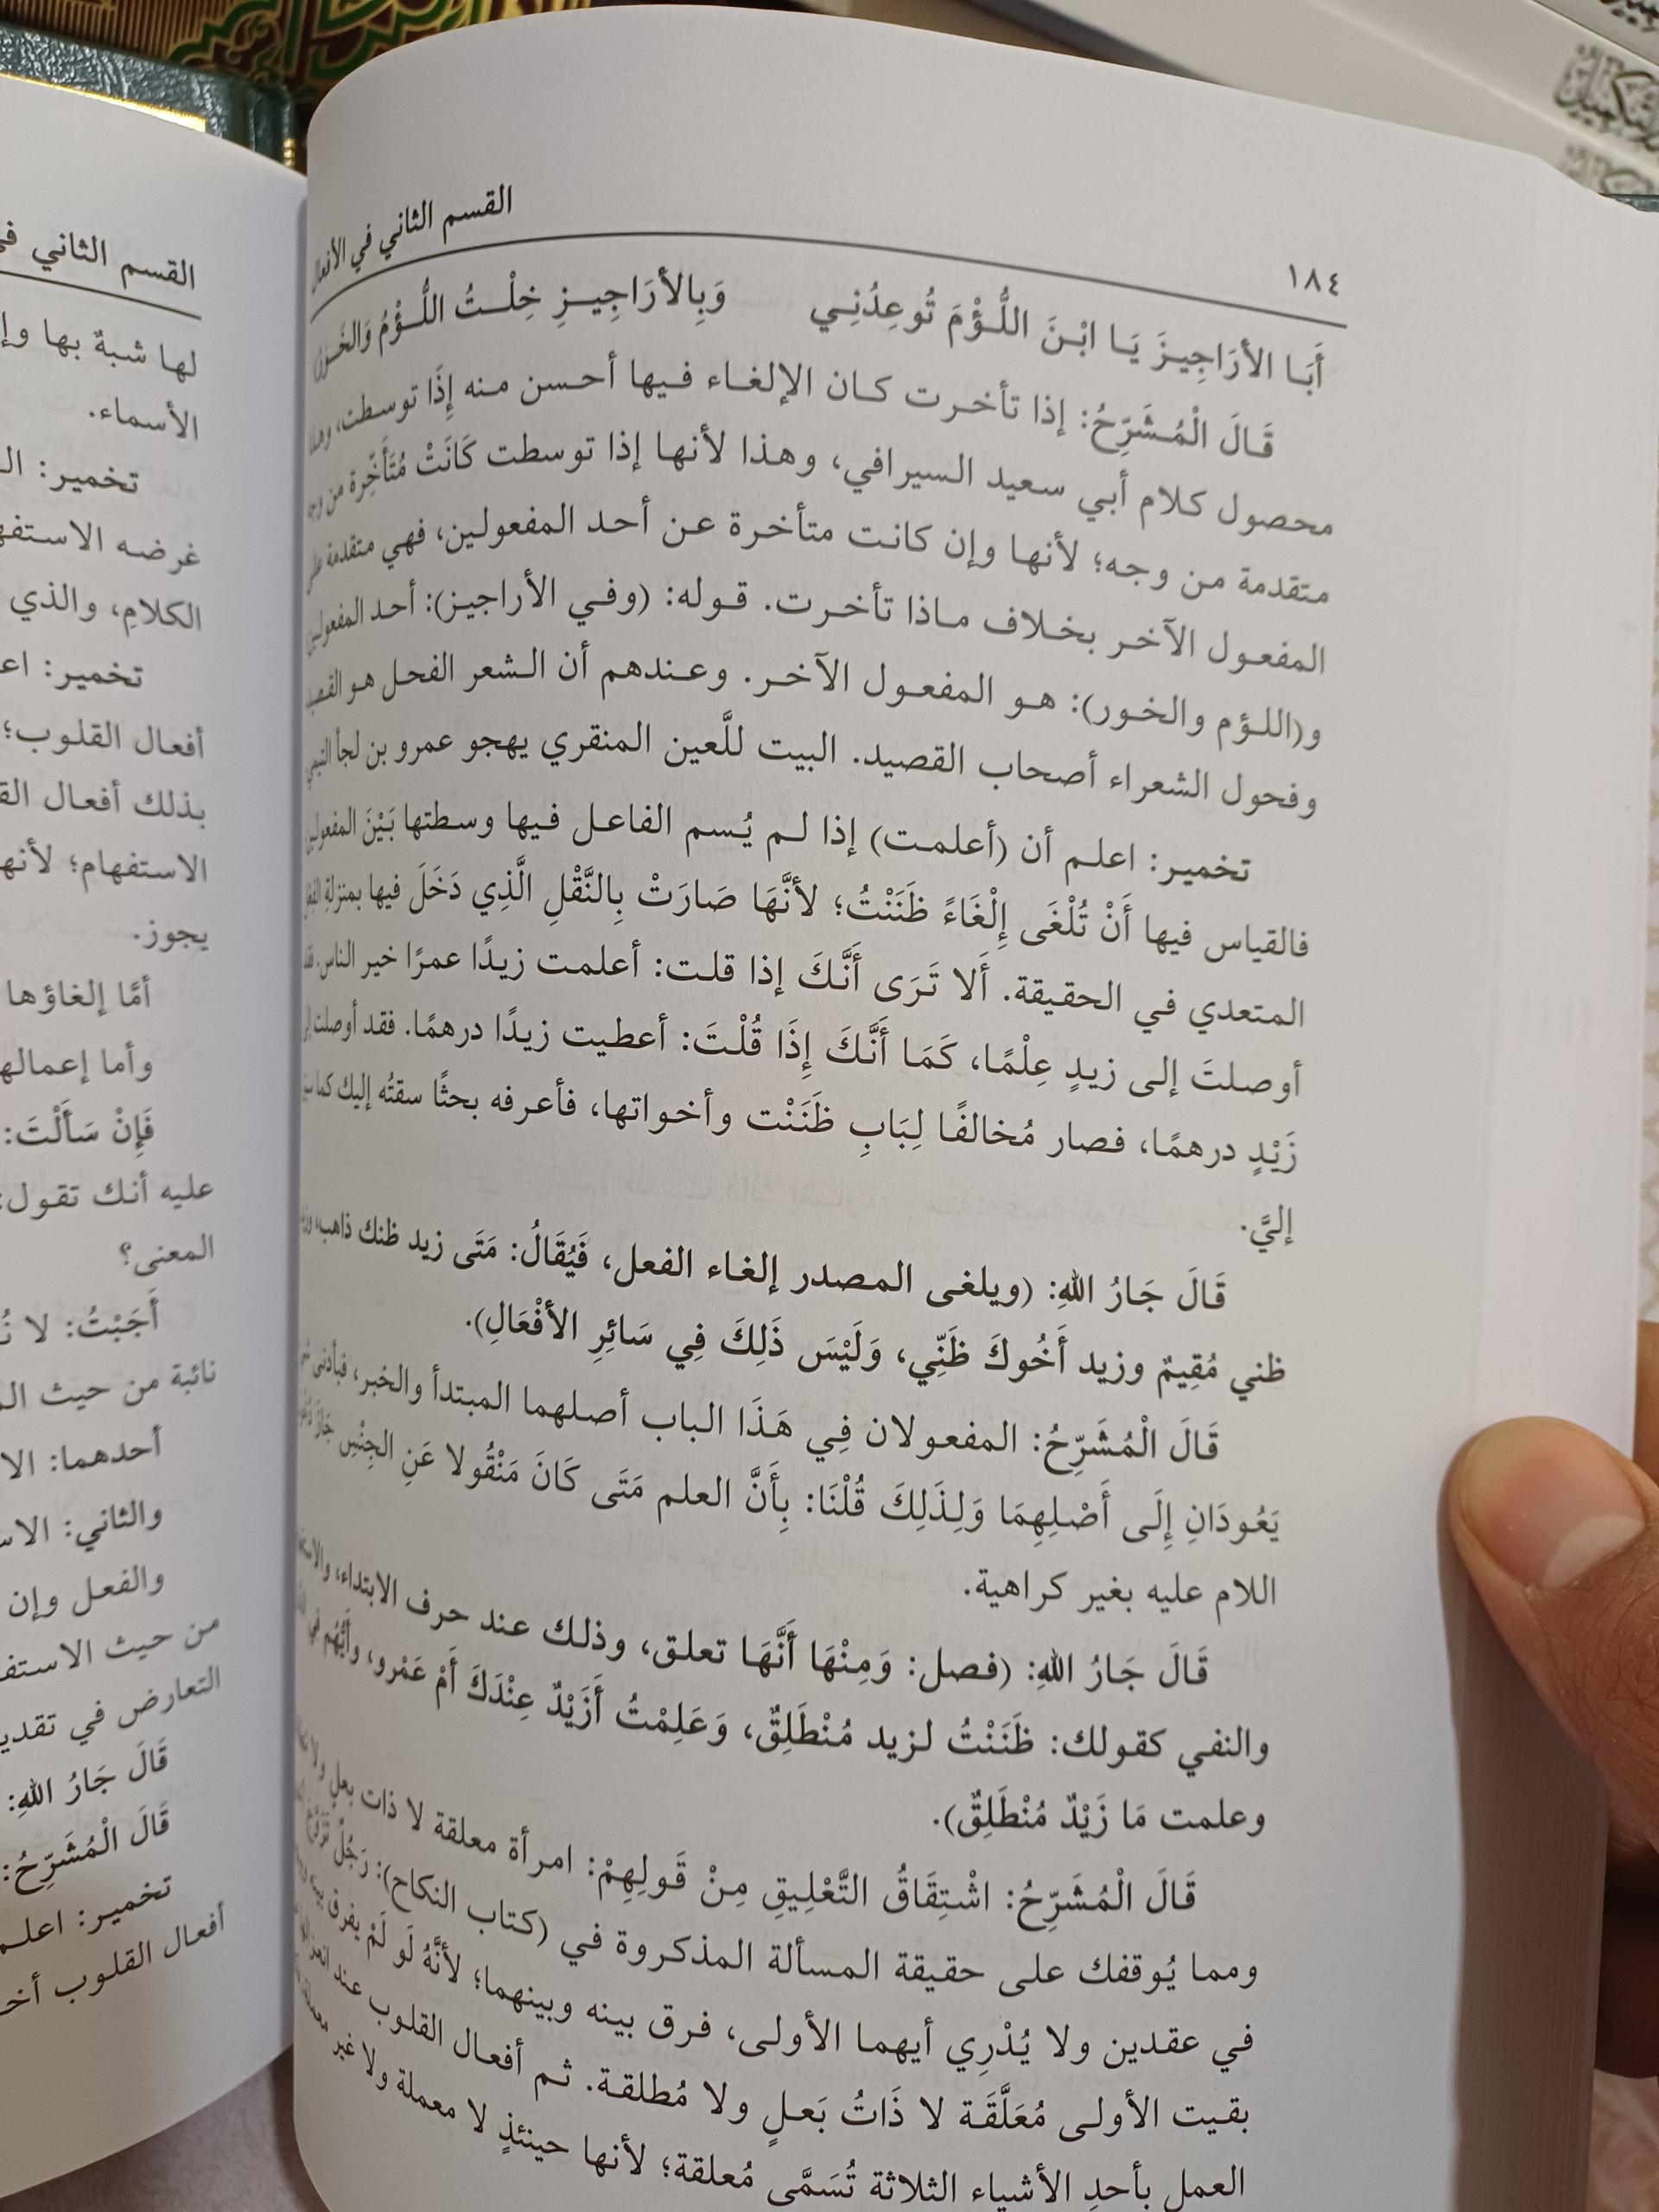 القسم الثاني في الأفعال
١٨٤
أَبَا الأرَاجِيـزَ يَـا ابْـنَ اللُّـؤْمَ تُوعِدُنِـي وَبِالأرَاجِيـزِ خِلْـتُ اللُّـؤْمُ وَالخَـوَرُ
قَـالَ الْمُـشَرِّحُ: إذا تأخـرت كـان الإلغـاء فـيها أحـسن مـنه إِذَا توسطت، وهذا
محصول كلام أبي سعيد السيرافي، وهـذا لأنهـا إذا توسطت كَانَتْ مُتَأَخِّرة من وجه
متقدمة من وجه؛ لأنهـا وإن كانـت متأخـرة عـن أحـد المفعولـين، فهي متقدمة على
المفعـول الآخـر بخـلاف مـاذا تأخـرت. قـوله: (وفـي الأراجيـز): أحـد المفعولـين
و(اللـؤم والخـور): هـو المفعـول الآخـر. وعـندهم أن الـشعر الفحـل هـو القـصيد
وفحول الشعراء أصحاب القصيد. البيت للَّعين المنقري يهجو عمرو بن لجأ التيمي
تخمير: اعلـم أن (أعلمـت) إذا لـم يُسم الفاعـل فـيها وسـطتها بَيْنَ المفعولين
فالقياس فيها أَنْ تُلْغَى إِلْغَاءً ظَنَنْتُ؛ لأنَّهَا صَارَتْ بِالنَّقْلِ الَّذِي دَخَلَ فيها بمنزلةِ الفِعْلِ
المتعدي في الحقيقة. أَلا تَرَى أَنَّكَ إذا قلت: أعلمت زيدًا عمرًا خير الناس، فقد
أوصلتَ إلى زيدٍ عِلْمًا، كَمَا أَنَّكَ إِذَا قُلْتَ: أعطيت زيدًا درهمًا. فقد أوصلت إلى
زَيْدٍ درهمًا، فصار مُخالفًا لِبَابِ ظَنَنْت وأخواتها، فأعرفه بحثًا سقتُه إليك كما سيق
إليَّ.
قَالَ جَارُ اللهِ: (ويلغى المصدر إلغاء الفعل، فَيُقَالُ: مَتَى زيد ظنك ذاهب، وزيد
ظني مُقِيمٌ وزيد أَخُوكَ ظَنِّي، وَلَيْسَ ذَلِكَ فِي سَائِرِ الأفْعَالِ).
قَالَ الْمُشَرِّحُ: المفعـولان فِـي هَـذَا الـباب أصـلهما المبتدأ والخبر، فبأدنى شيء
يَعُودَانِ إِلَى أَصْلِهِمَا وَلِذَلِكَ قُلْنَا: بِأَنَّ العلم مَتَى كَانَ مَنْقُولا عَنِ الجِنْسِ جَازَ
اللام عليه بغير كراهية.
قَالَ جَارُ اللهِ: (فصل: وَمِنْهَا أَنَّهَا تعلق، وذلك عند حرف الابتداء، والاستفهام
والنفي كقولك: ظَنَنْتُ لزيد مُنْطَلِقٌ، وَعَلِمْتُ أَزَيْدٌ عِنْدَكَ أَمْ عَمْرو، وأَيُّهُم في
وعلمت مَا زَيْدٌ مُنْطَلِقٌ).
قَالَ الْمُشَرِّحُ: اشْتِقَاقُ التَّعْلِيقِ مِنْ قَولِهِمْ: امرأة معلقة لا ذات بعلٍ ولا
ومما يُوقفك على حقيقة المسألة المذكروة في (كتاب النكاح): رَجُلٌ
في عقدين ولا يُدْرِي أيهما الأولى، فرق بينه وبينهما؛ لأنَّهُ لَو لَمْ يفرق
بقيت الأولى مُعَلَّقَة لا ذَاتُ بَعلٍ ولا مُطلقة. ثم أفعال القلوب عند
العمل بأحدِ الأشياء الثلاثة تُسَمَّى مُعلقة؛ لأنها حينئذٍ لا معملة ولا غير
القسم الثاني
لها شبةٌ بها
الأسماء.
تخمير:
غرضه
الكلامِ، والذي
تخمير:
أفعال القلوب؛
بذلك أفعال
الاستفهام؛
يجوز.
أمَّا إلغاؤها
وأما
فَإِنْ سَأَلْتَ:
عليه أنك تقول:
المعنى؟
أَجَبْتُ: لا
نائبة من حيث
أحدهما:
والثاني:
والفعل وإن
من حيث
التعارض في
قَالَ جَارُ اللهِ:
قَالَ الْمُشَرِّحُ:
تخمير:
أفعال القلوب